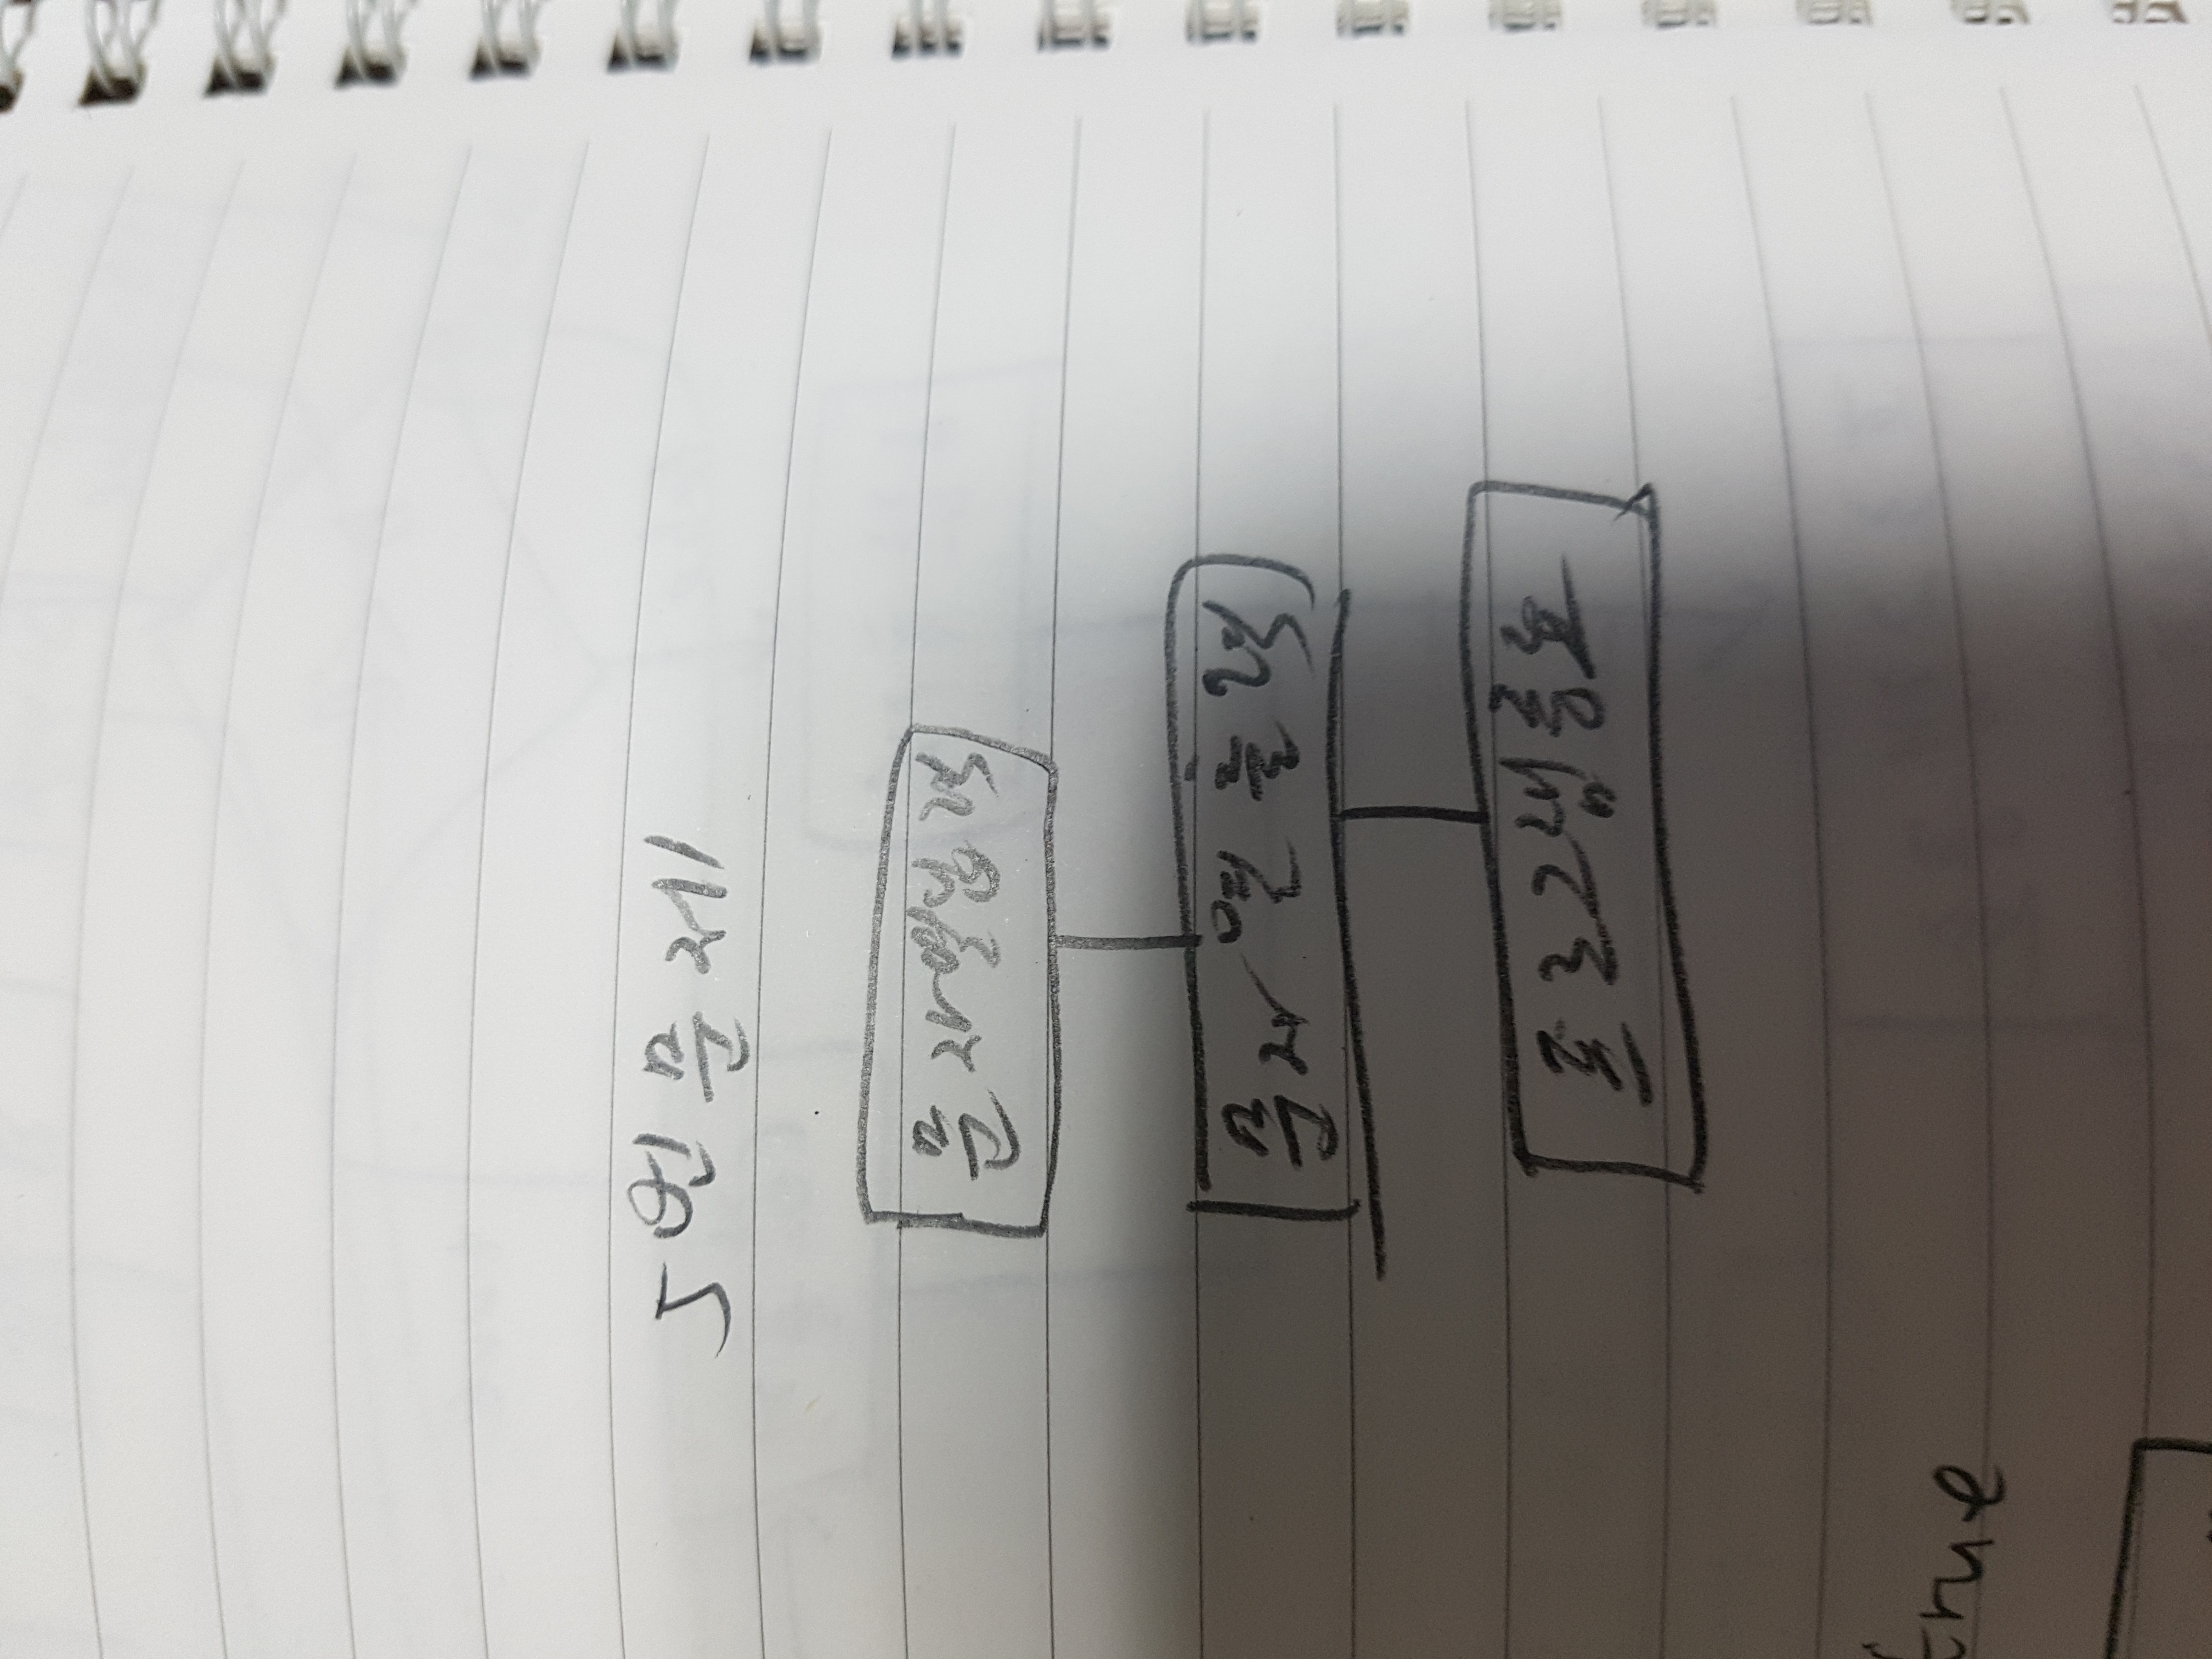 5번 문제
문자열입력
문자열 출력
프로그램종료
true